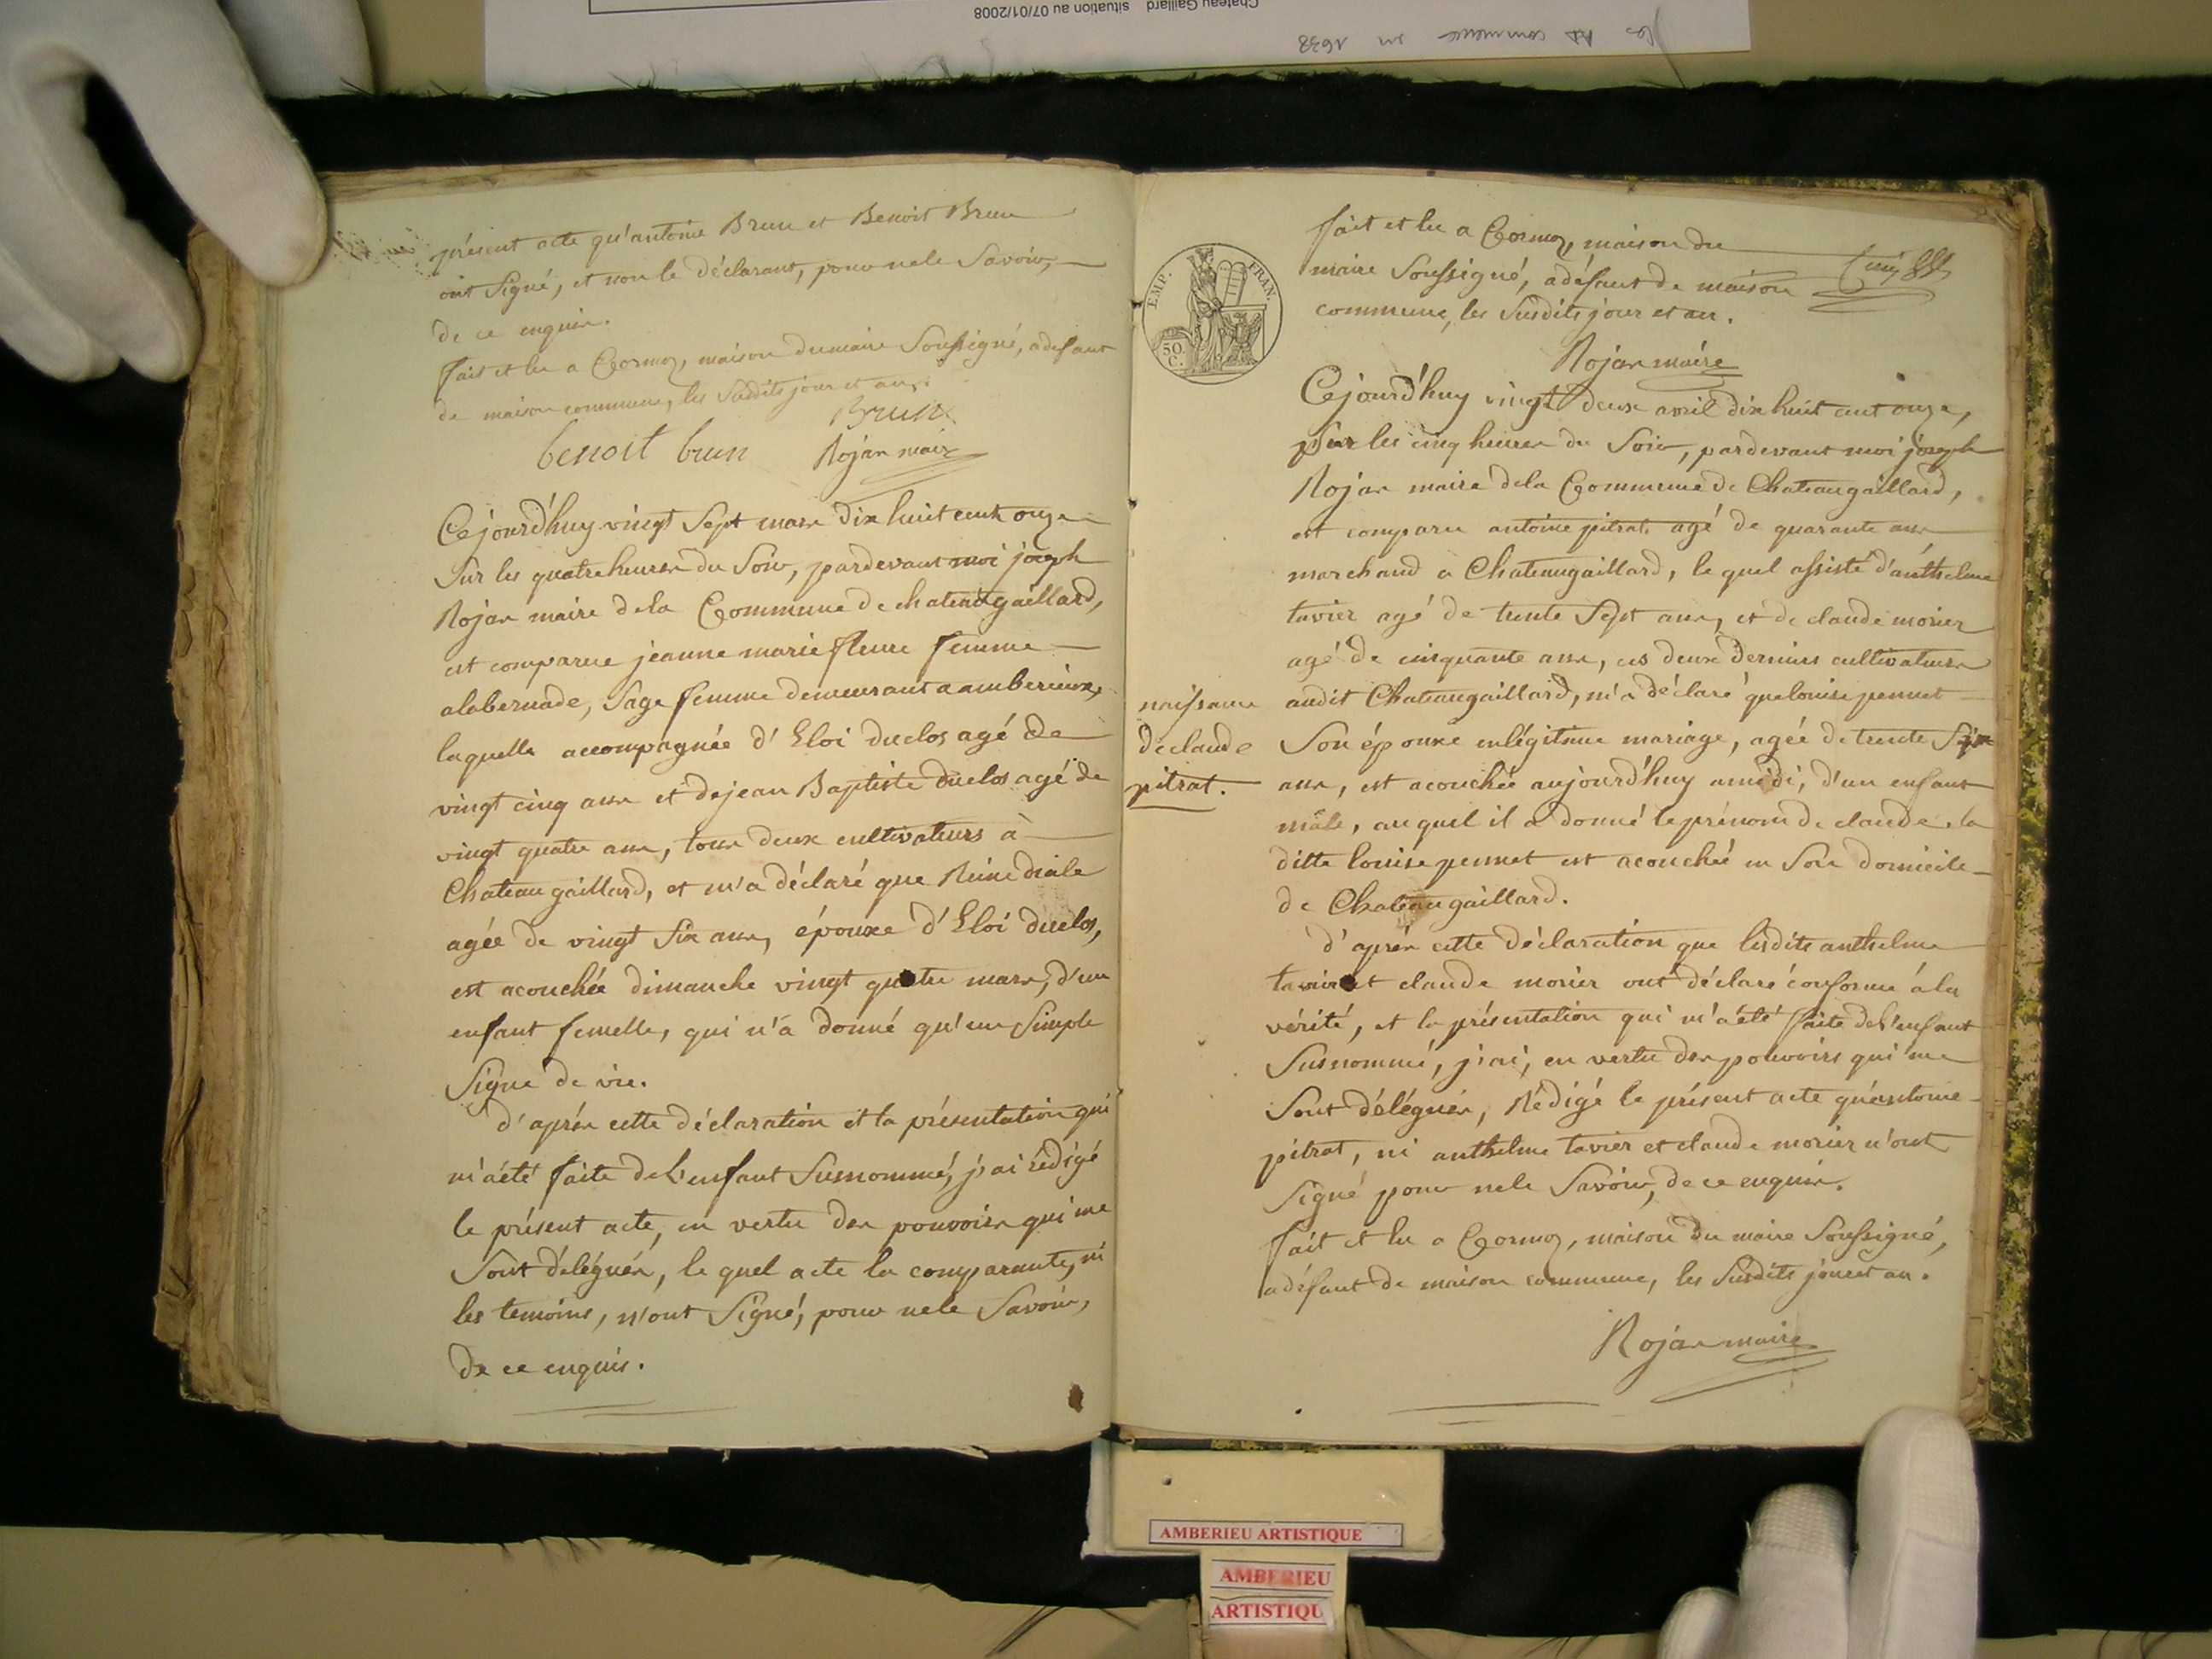 Chateau Gaillard situation au 07/01/2008
commence en 1638
présent acte qu'antoine Brun et Benoit Brun
ont Signé, et non le déclarant, pour nele Savoir,
de ce enquis.
fait et lu a Cormoz, maison dumaire Soussigné, adefaut
de maison commune, les Susdits jour et an.
Brun
benoit brun Rojan maire
Cejourd'huy vingt Sept mars dix huit cent onze
Sur les quatre heures du Soir, pardevant moi joseph
Rojan maire dela Commune de chateaugaillard,
est comparue jeanne marie fleure femme
alabernade, Sage femme demeurant a amberieux,
laquelle accompagnée d'Eloi duclos agé de
vingt cinq ans et dejean Baptiste Duclos agé de
vingt quatre ans, tous deux cultivateurs à
Chateaugaillard, et m'a déclaré que Reine diale
agée de vingt Six ans, épouse d'Eloi duclos,
est acouchée dimanche vingt quatre mars, d'un
enfant femelle, qui n'a donné qu'un Simple
Signe de vie.
d'après cette déclaration et la présentation qui
m'a été faite del'enfant Susnommé, j'ai rédigé
le présent acte, en vertu des pouvoirs qui me
Sont délégués, le quel acte la comparante, ni
les temoins, n'ont Signé, pour nele Savoir,
de ce enquis.
EMP. FRAN.
50 C.
fait et lu a Cormoz, maison du
maire Soussigné, adéfaut de maison
commune, les Susdits jour et an.
Rojan maire
Cejourd'huy vingt deux avril dix huit cent onze,
Sur les cinq heures du Soir, pardevant moi joseph
Rojan maire dela Commune de Chateaugaillard,
est comparu antoine pitrat agé de quarante ans
marchand a Chateaugaillard, le quel assisté d'anthelme
tavier agé de trente Sept ans, et de claude morier
agé de cinquante ans, ces deux derniers cultivateurs
audit Chateaugaillard, m'a déclaré que louise pennet
Son épouse enlégitime mariage, agée de trente Six
ans, est acouchée aujourd'huy amidi, d'un enfant
mâle, auquel il a donné le prénom de claude. la
ditte louise pennet est acouchée en Son domicile
de Chateaugaillard.
naissance
declaude
pitrat.
d'après cette déclaration que lesdits anthelme
tavier et claude morier ont déclaré conforme à la
vérité, et la présentation qui m'a été faite del'enfant
Susnommé, j'ai, en vertu des pouvoirs qui me
Sont délégués, Rédigé le présent acte qu'antoine
pitrat, ni anthelme tavier et claude morier n'ont
Signé pour nele Savoir, de ce enquis.
fait et lu a Cormoz, maison du maire Soussigné,
adéfaut de maison commune, les Susdits jour et an.
Rojan maire
AMBERIEU ARTISTIQUE
AMBERIEU
ARTISTIQU